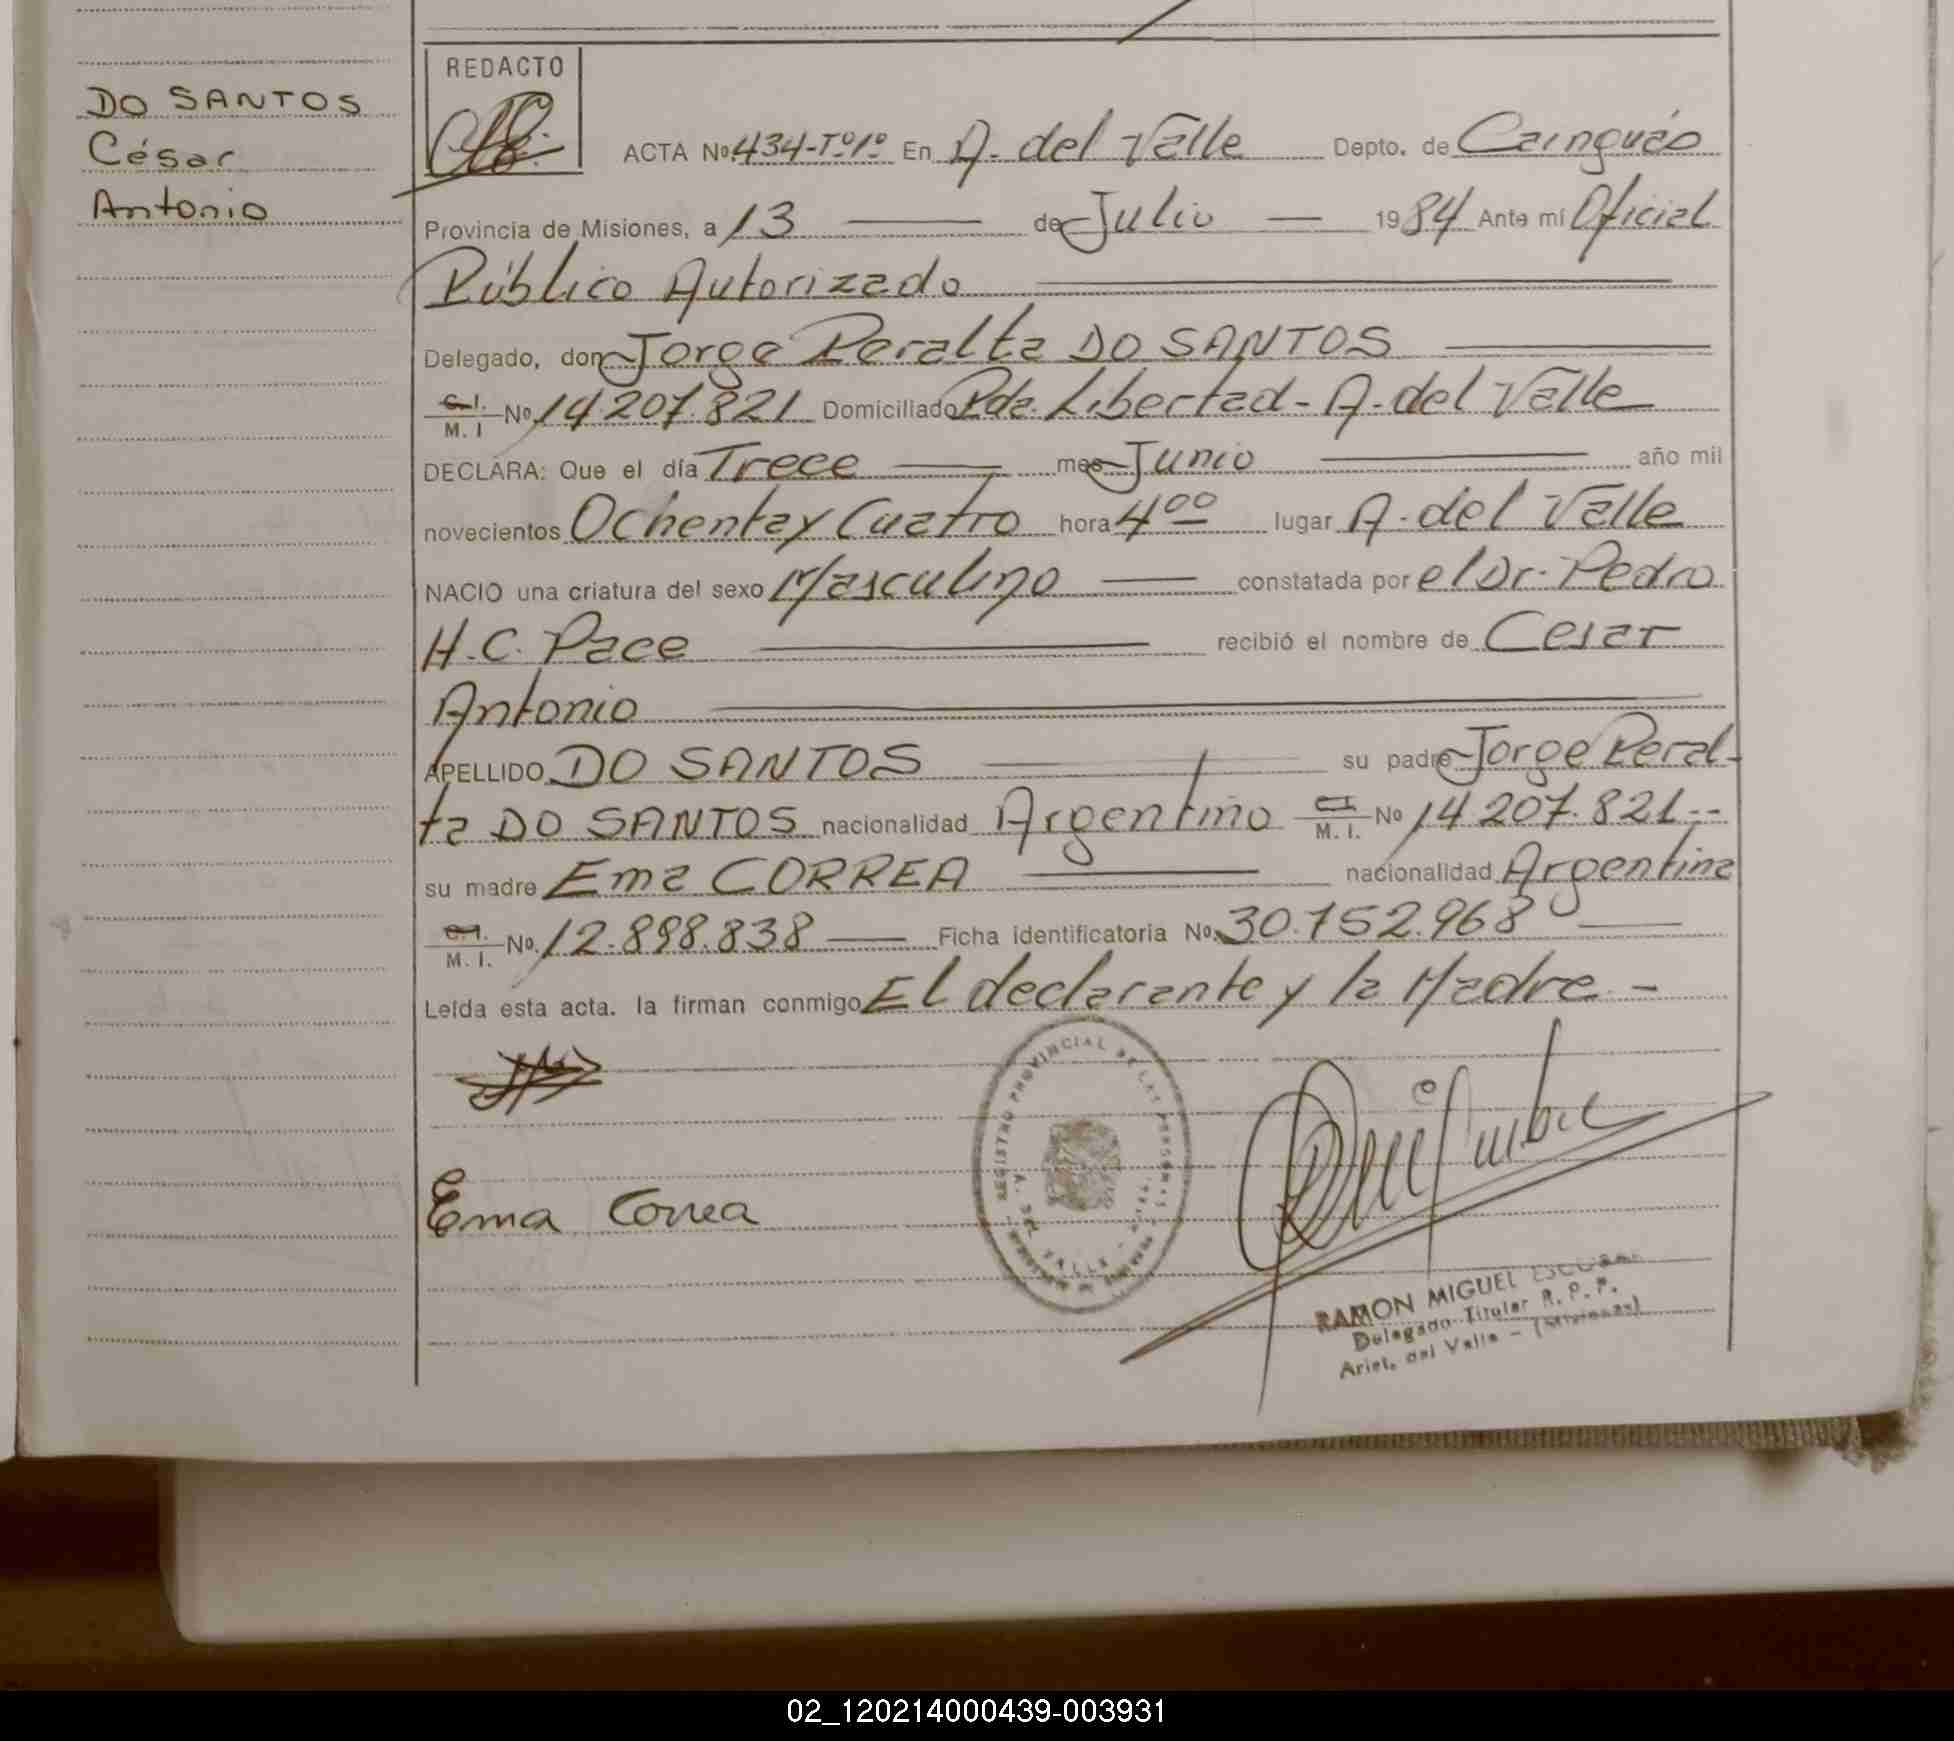 DO SANTOS
César
Antonio
REDACTO
ACTA No. 434-Tº1º En A. del Valle Depto. de Cainguás
Provincia de Misiones, a 13 de Julio 1984 Ante mí Oficial
Público Autorizado
Delegado, don Jorge Peralta DO SANTOS
C.I. M. I No. 14.207.821 Domiciliado Pda. Libertad - A. del Valle
DECLARA: Que el día Trece mes Junio año mil
novecientos Ochenta y Cuatro hora 4 00 lugar A. del Valle
NACIO una criatura del sexo Masculino constatada por el Dr. Pedro
H.C. Pace recibió el nombre de Cesar
Antonio
APELLIDO DO SANTOS su padre Jorge Peral-
ta DO SANTOS nacionalidad Argentino C.I. M. I. No 14.207.821--
su madre Ema CORREA nacionalidad Argentina
C.I. M. I. No. 12.898.838 Ficha identificatoria No. 30.752.968
Leída esta acta. la firman conmigo El declarante y la Madre -
REGISTRO PROVINCIAL DE LAS PERSONAS
A. DEL VALLE
Ema Correa
RAMON MIGUEL ESCOBAR
Delegado Titular R. P. P.
Arist. del Valle - (Misiones)
02_120214000439-003931